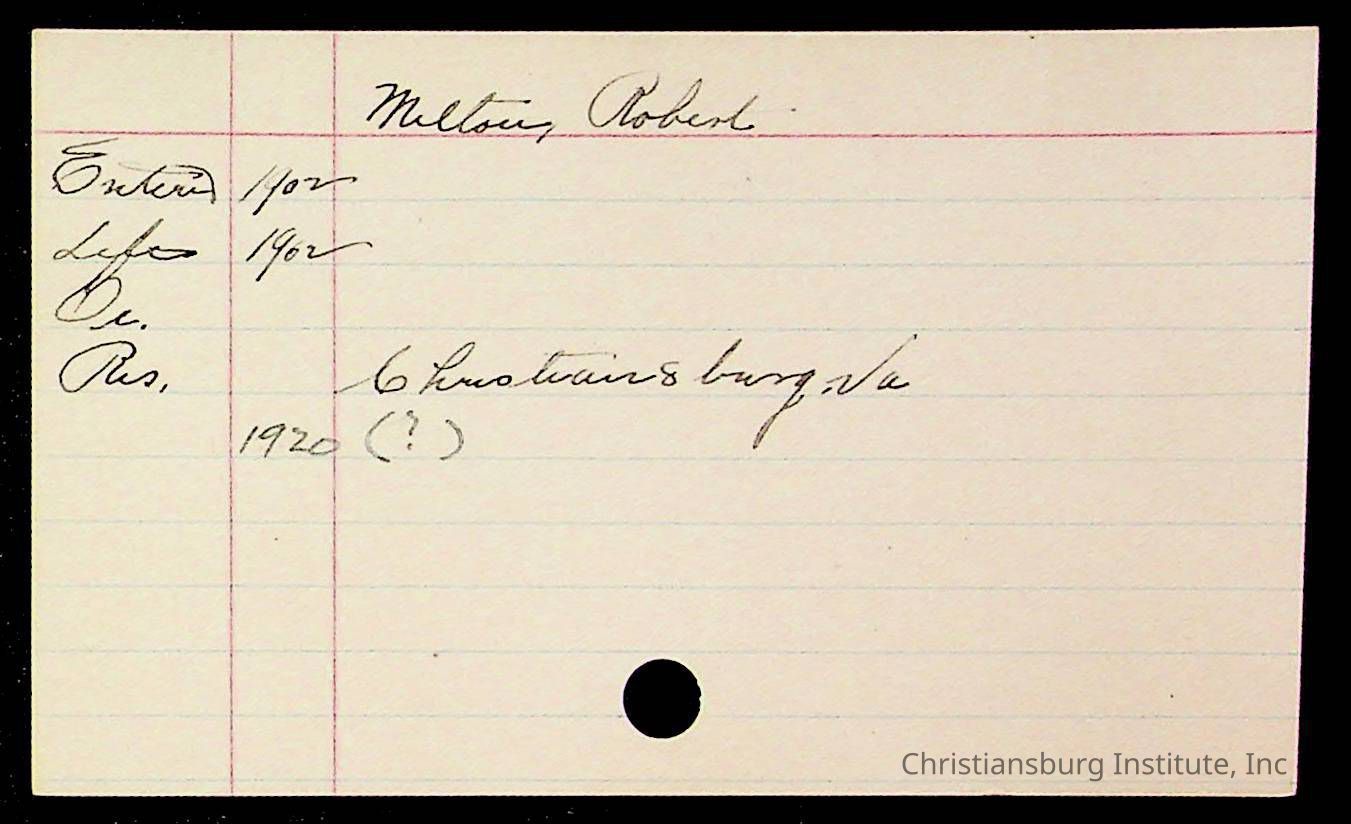 Milton, Robert
Entered 1902
Left 1902
Oc.
Res. Christiansburg, Va
1920 (?)
Christiansburg Institute, Inc